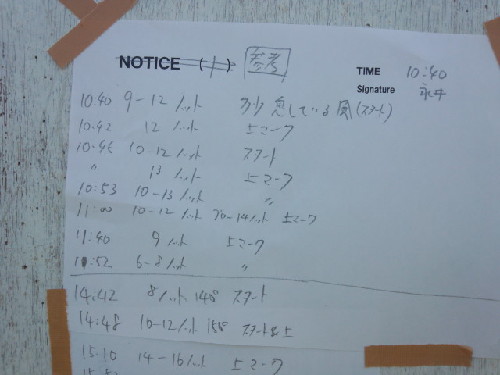 NOTICE ( 1 ) 参考
TIME 10:40
Signature
10:40 9-12ノット 吹き出している風(スタート)
10:42 12ノット 上マーク
10:46 10-12ノット スタート
〃 13ノット 上マーク
10:53 10-13ノット 〃
11:00 10-12ノット 上マーク
11:40 9ノット 上マーク
6-8ノット 〃
14:42 8ノット 148° スタート
14:48 10-12ノット 155 スタート
15:10 14-16ノット 上マーク